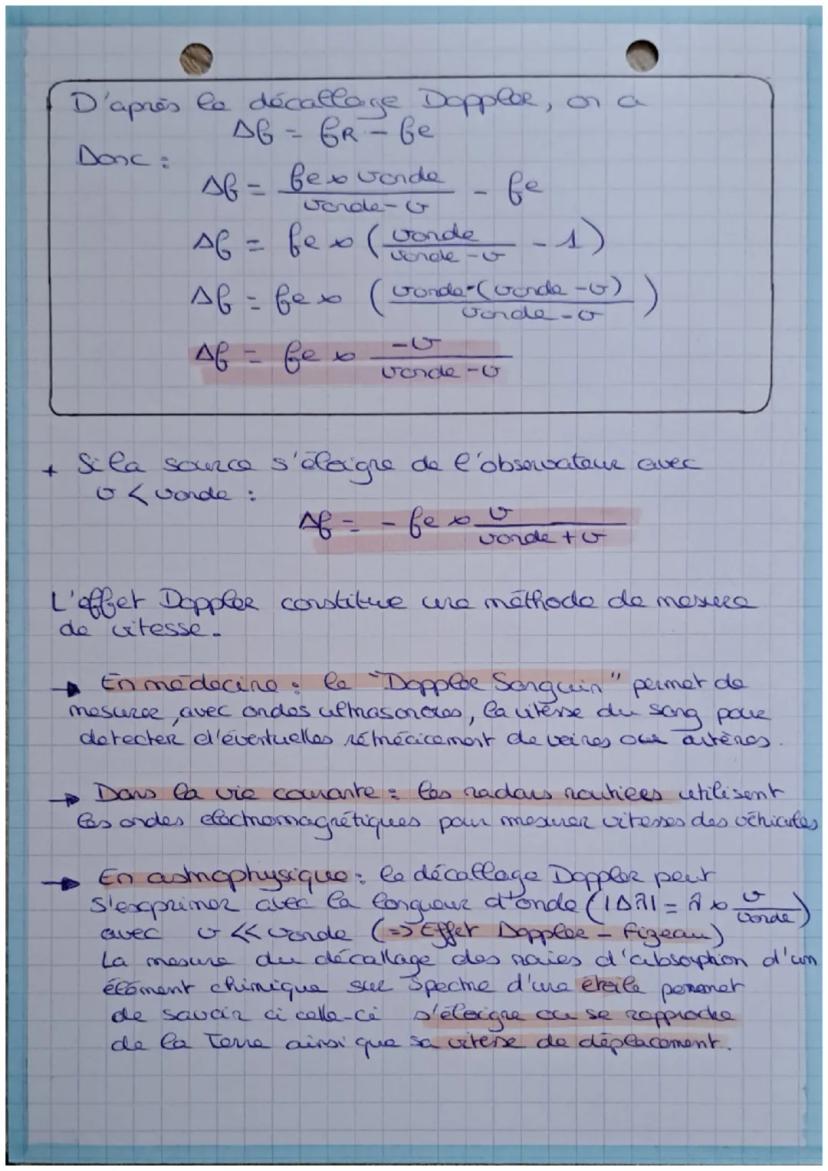 D'après le décallage Doppler, on a
Δf = fR - fe
Donc :
Δf = fe × vonde / vonde - v - fe
Δf = fe × ( vonde / vonde - v - 1 )
Δf = fe × ( vonde - (vonde - v) / vonde - v )
Δf = fe × -v / vonde - v
+ Si la source s'éloigne de l'observateur avec
v < vonde :
Δf = - fe × v / vonde + v
L'effet Doppler constitue une méthode de mesure
de vitesse.
→ En médecine : le "Doppler Sanguin" permet de
mesurer, avec ondes ultrasonores, la vitesse du sang pour
detecter d'éventuelles rétrécicement de veines ou artères.
→ Dans la vie courante : les radars routiers utilisent
les ondes électromagnétiques pour mesurer vitesses des véhicules
→ En astrophysique : le décallage Doppler peut
s'exprimer avec la longueur d'onde (|Δλ| = λ × v / vonde)
avec v << vonde (=> Effet Doppler - Fizeau)
La mesure du décallage des raies d'absorption d'un
élément chimique sur spectre d'une étoile permet
de savoir ci celle-ci s'éloigne ou se rapproche
de la Terre ainsi que sa vitesse de déplacement.